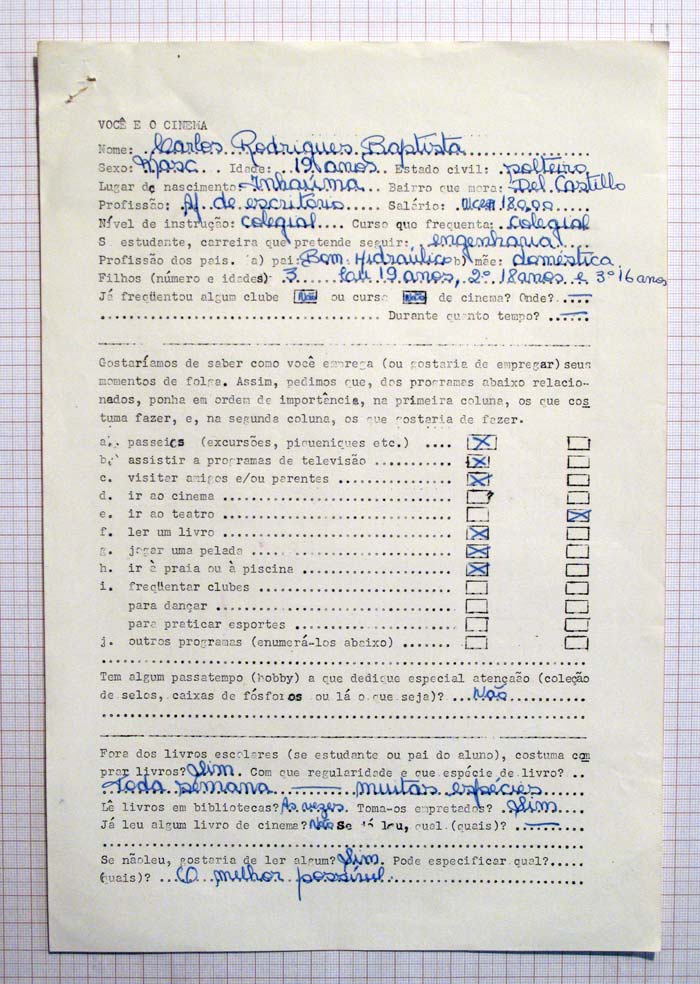 VOCÊ E O CINEMA
Nome: Carlos Rodrigues Baptista
Sexo: Masc Idade: 19 anos Estado civil: solteiro
Lugar de nascimento: Inhaúma Bairro que mora: Del Castillo
Profissão: de escritório Salário:
Nível de instrução: colegial Curso que frequenta: colegial
S estudante, carreira que pretende seguir: engenharia
Profissão dos pais. a) pai: Bom. Hidráulico b) mãe: doméstica
Filhos (número e idades) 3 19 anos, 2º 18 anos e 3º 16 anos
Já freqüentou algum clube Não ou curso Não de cinema? Onde? —
Durante quanto tempo? —
Gostaríamos de saber como você emprega (ou gostaria de empregar) seus
momentos de folga. Assim, pedimos que, dos programas abaixo relacio-
nados, ponha em ordem de importância, na primeira coluna, os que cos
tuma fazer, e, na segunda coluna, os que gostaria de fazer.
a. passeios (excursões, piqueniques etc.) .... X
b. assistir a programas de televisão ........... X
c. visitar amigos e/ou parentes ................ X
d. ir ao cinema ................................
e. ir ao teatro ................................ X
f. ler um livro ................................ X
g. jogar uma pelada ............................ X
h. ir à praia ou à piscina ..................... X
i. freqüentar clubes ...........................
para dançar ................................
para praticar esportes .....................
j. outros programas (enumerá-los abaixo) .......
Tem algum passatempo (hobby) a que dedique especial atençaão (coleção
de selos, caixas de fósforos ou lá o que seja)? ... Não
Fora dos livros escolares (se estudante ou pai do aluno), costuma com
prar livros? Sim. Com que regularidade e que espécie de livro? ..
Toda semana — muitas espécies
Lê livros em bibliotecas? As vezes. Toma-os empretados? Sim
Já leu algum livro de cinema? Não Se já leu, qual (quais)? —
Se nãoleu, gostaria de ler algum? Sim. Pode especificar qual?
(quais)? ... O melhor possível